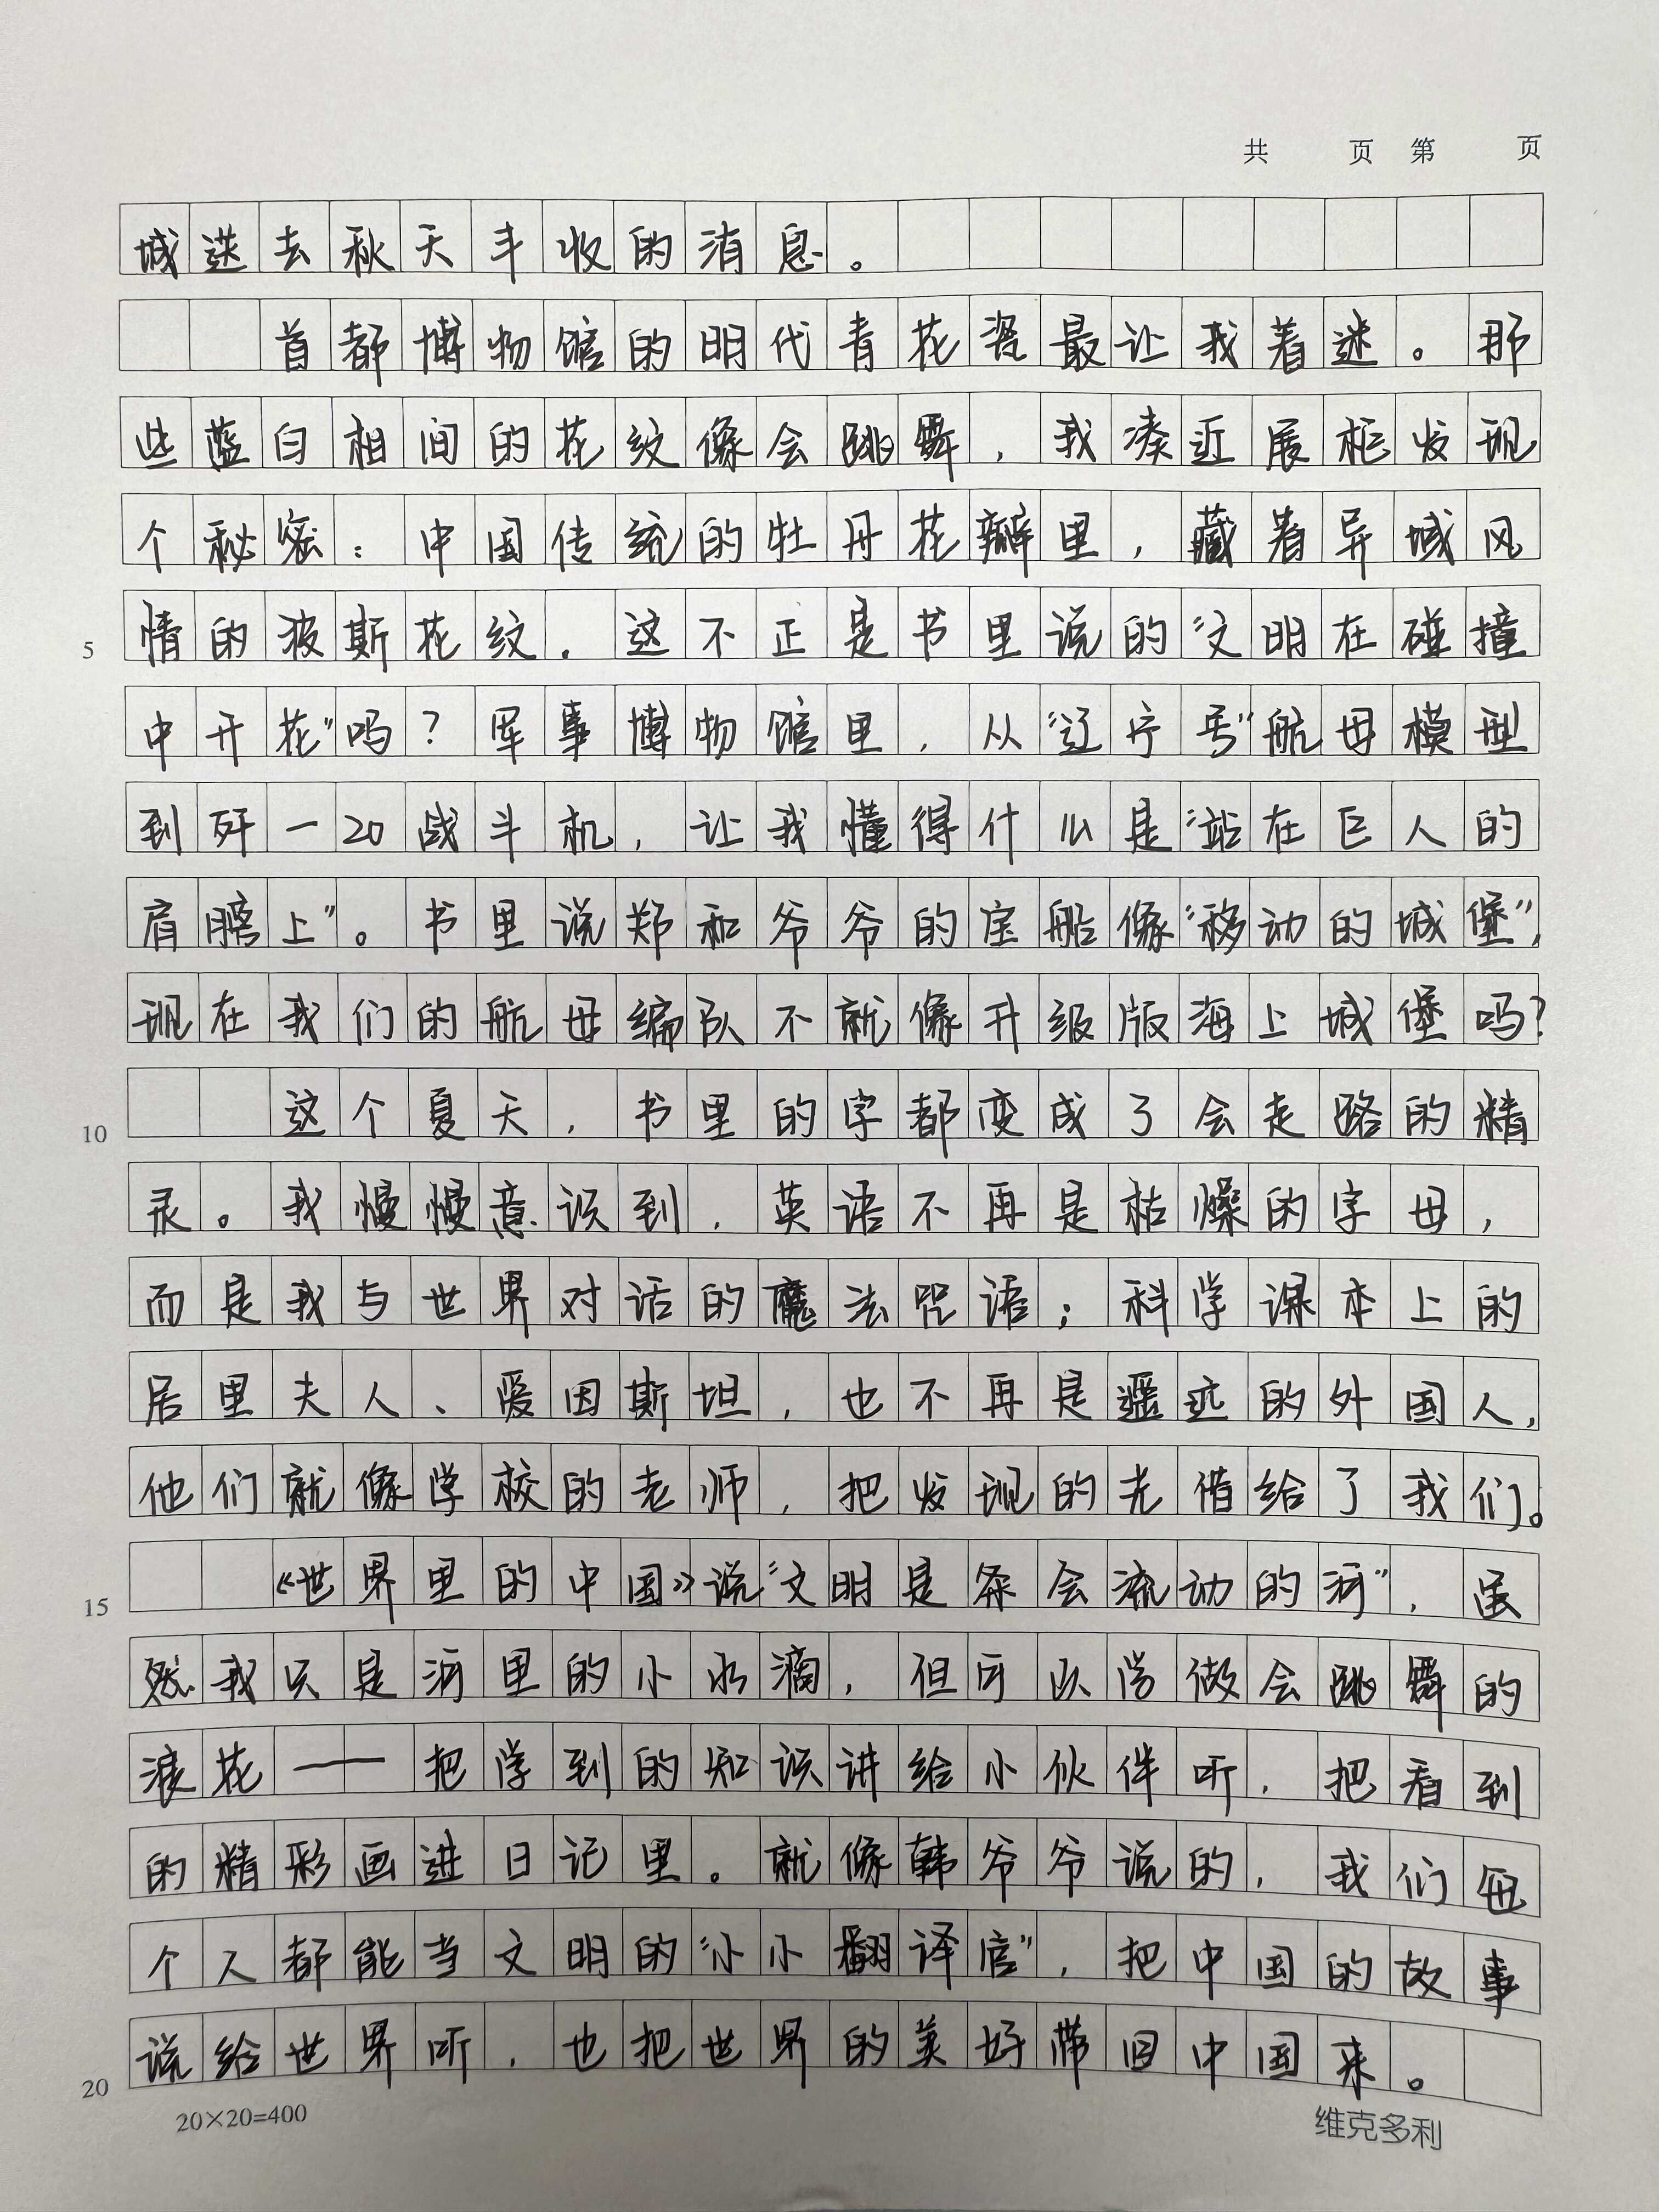 共 页 第 页
城送去秋天丰收的消息。
首都博物馆的明代青花瓷最让我着迷。那
些蓝白相间的花纹像会跳舞，我凑近展柜发现
个秘密：中国传统的牡丹花瓣里，藏着异域风
情的波斯花纹。这不正是书里说的“文明在碰撞
5
中开花”吗？军事博物馆里，从“辽宁号”航母模型
到歼—20战斗机，让我懂得什么是“站在巨人的
肩膀上”。书里说郑和爷爷的宝船像“移动的城堡”，
现在我们的航母编队不就像升级版海上城堡吗？
这个夏天，书里的字都变成了会走路的精
10
灵。我慢慢意识到，英语不再是枯燥的字母，
而是我与世界对话的魔法咒语；科学课本上的
居里夫人、爱因斯坦，也不再是遥远的外国人，
他们就像学校的老师，把发现的光借给了我们。
《世界里的中国》说“文明是条会流动的河”，虽
15
然我只是河里的小水滴，但可以学做会跳舞的
浪花——把学到的知识讲给小伙伴听，把看到
的精彩画进日记里。就像韩爷爷说的，我们每
个人都能当文明的“小小翻译官”，把中国的故事
说给世界听，也把世界的美好带回中国来。
20
20×20=400
维克多利